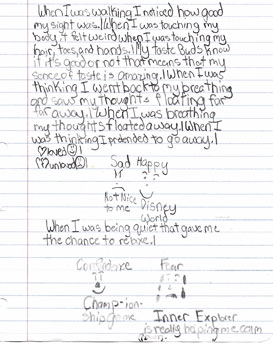 When I was walking I noticed how good
my sight was. When I was touching my
body it felt weird when I was touching my
hair, toes, and hands. My taste Buds know
if it's good or not that means that my
sence of taste is amazing. When I was
thinking I went back to my breathing
and saw my thoughts floating far
far away. When I was breathing
my thoughts floated away. When I
was thinking I pretended to go away.
Sad Happy
Not Nice Disney
to me World
When I was being quiet that gave me
the chance to relaxe.
Confidence Fear
Champ-ion-
ship game Inner Explorer
is really helping me calm